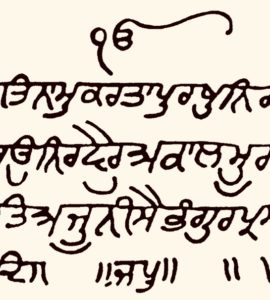 ੴ
ਤਿਨਾਮੁਕਰਤਾਪੁਰਖੁਨਿਰ
ਉਨਿਰਵੈਰੁਅਕਾਲਮੂਰ
ਤਿਅਜੂਨੀਸੈਭੰਗੁਰਪ੍ਰ
ਦਿ॥ ॥ਜਪੁ॥ ॥ ॥